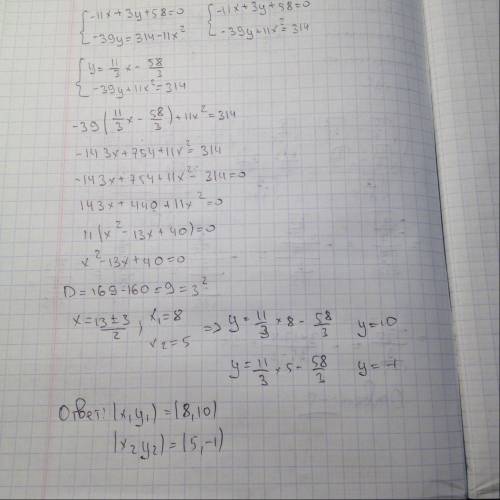 {-11x+3y+58=0 {-11x+3y+58=0
{-39y=314-11x² {-39y+11x²=314
{y=11/3x-58/3
{-39y+11x²=314
-39(11/3x-58/3)+11x²=314
-143x+754+11x²=314
-143x+754+11x²-314=0
143x+440+11x²=0
11(x²-13x+40)=0
x²-13x+40=0
D=169-160=9=3²
x=13±3/2; x₁=8 => y=11/3×8-58/3 y=10
x₂=5 y=11/3×5-58/3 y=-1
Ответ: (x₁y₁)=(8,10)
(x₂y₂)=(5,-1)